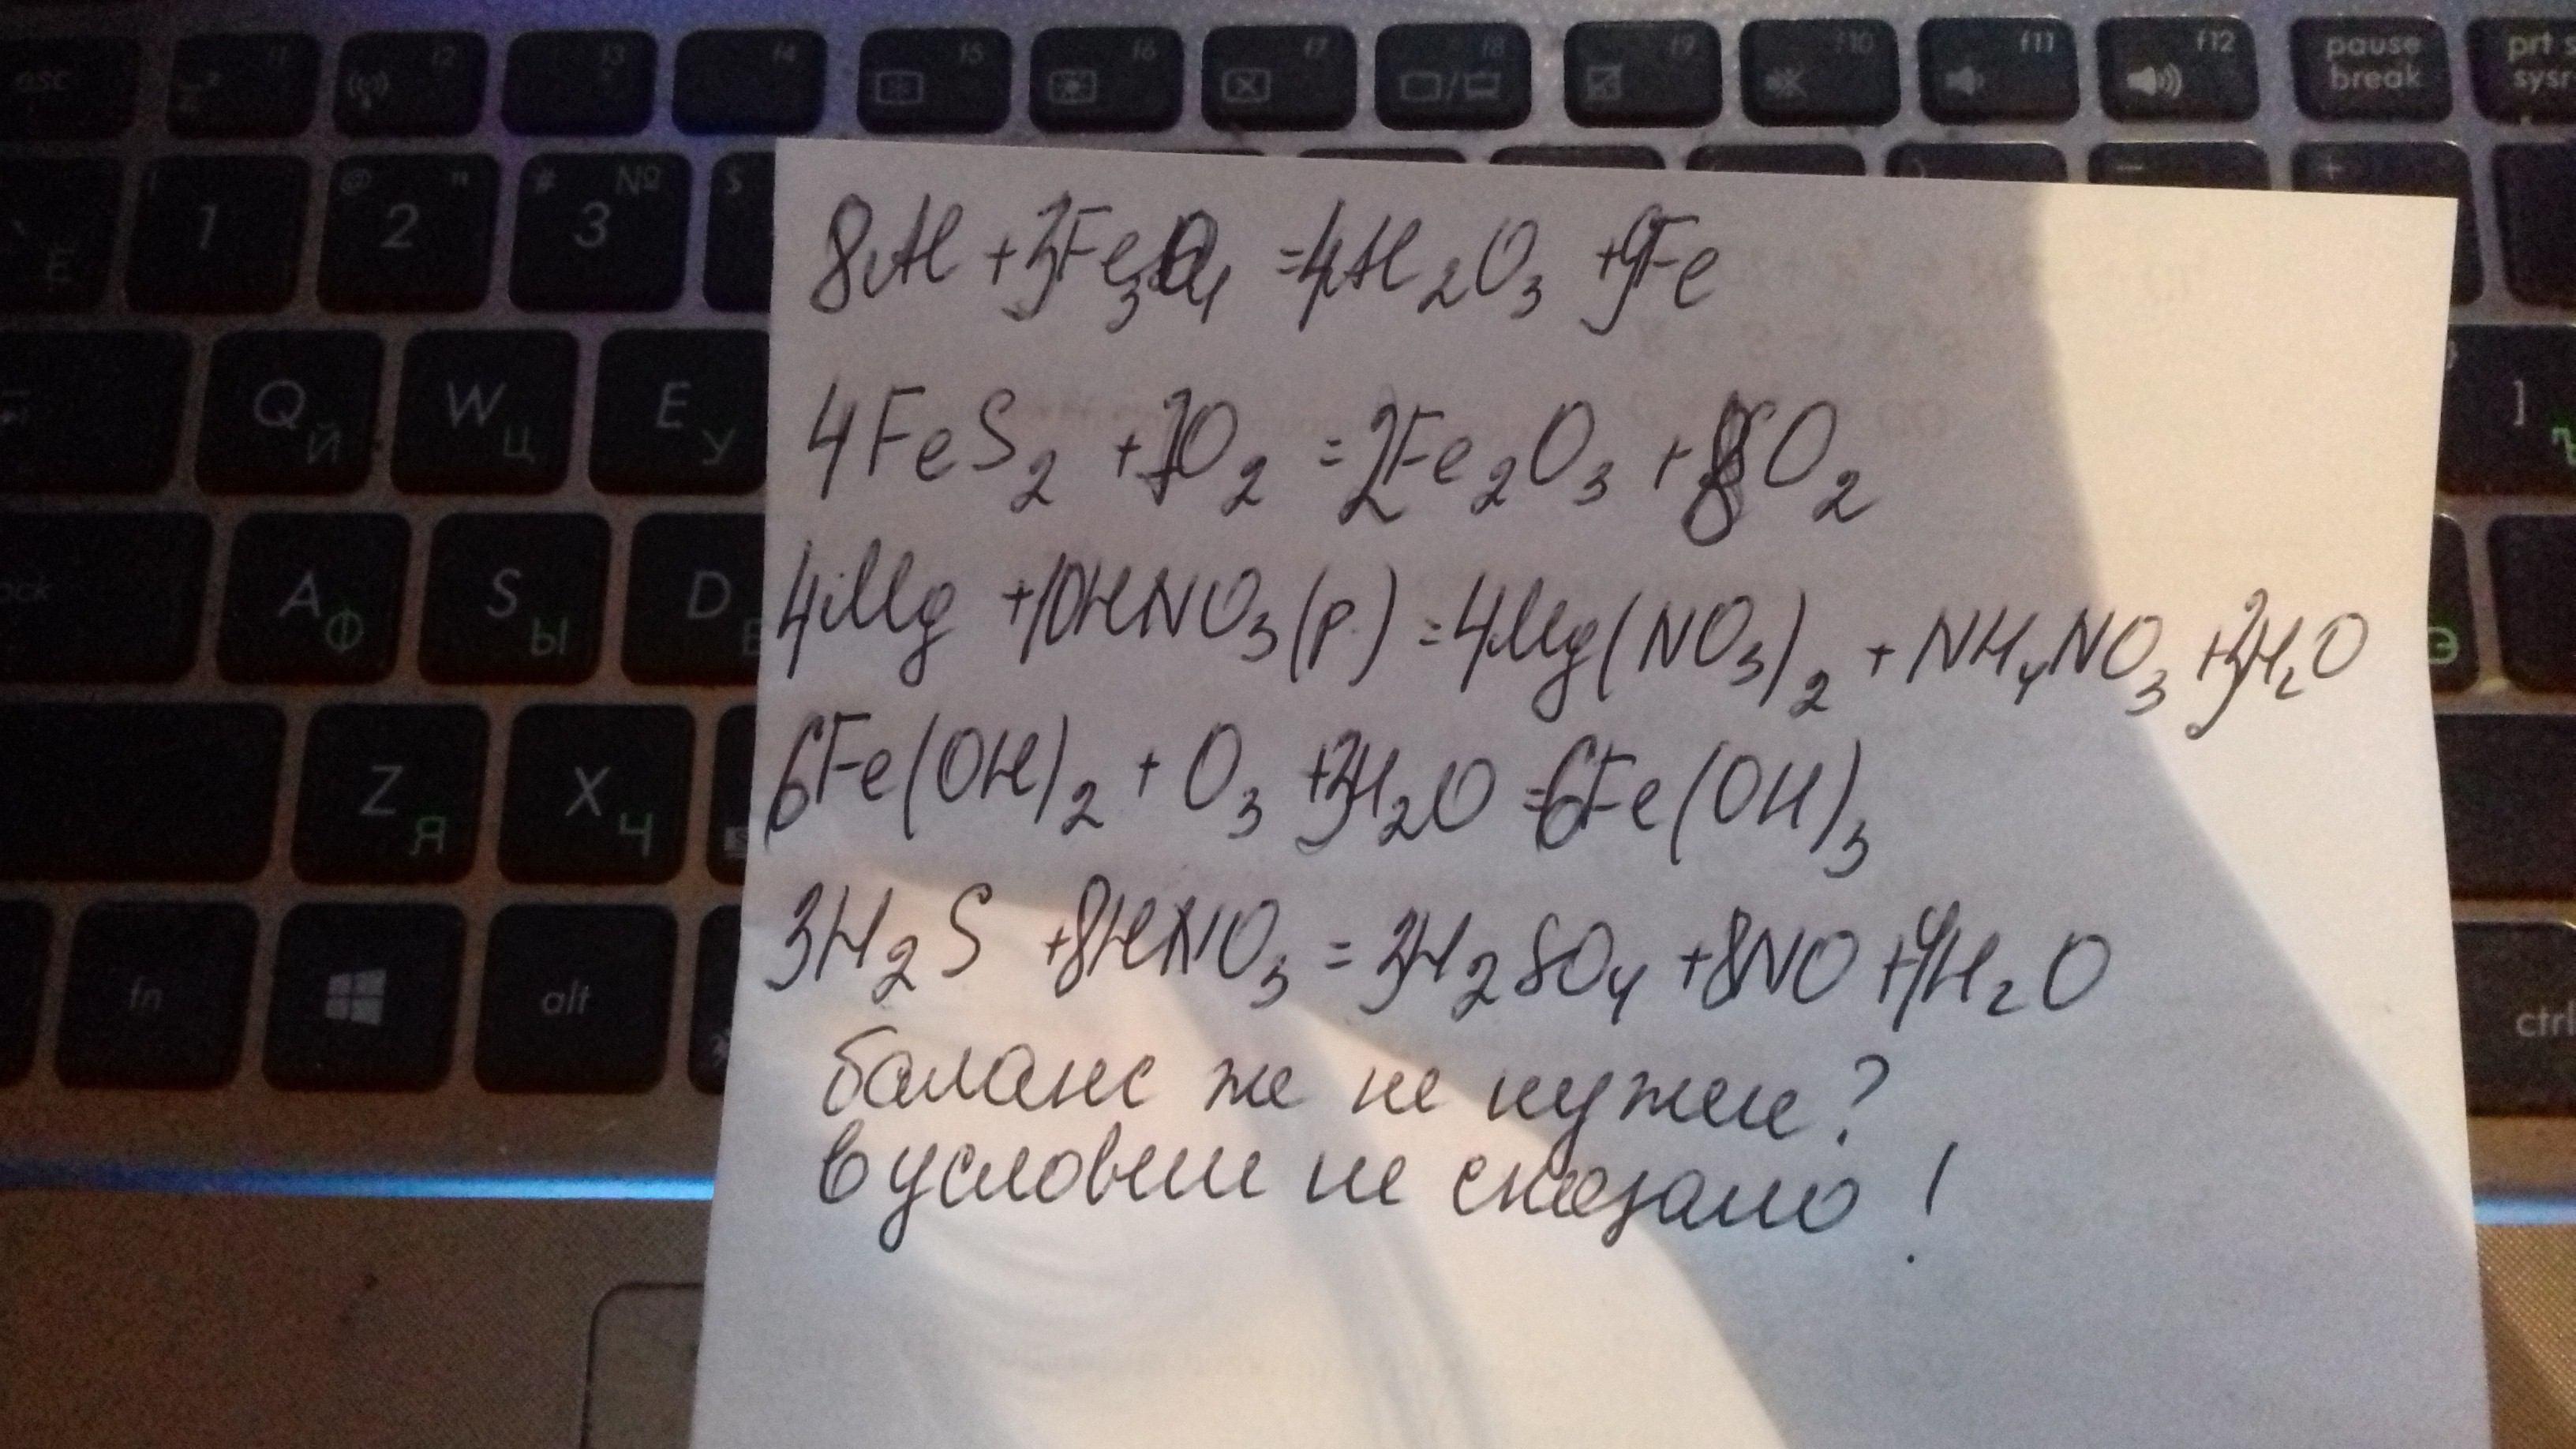 esc f1 f2 f3 f4 f5 f6 f7 f8 f9 f10 f11 f12 pause break prt sysr
1 @ 2 " # 3 № $
Ё
Q Й W Ц E У ]
A Ф S Ы D Э
Z Я X Ч
fn alt ctrl
8Al + 3Fe₃O₄ = 4Al₂O₃ + 9Fe
4FeS₂ + O₂ = 2Fe₂O₃ + 8SO₂
4Mg + 10HNO₃(р.) = 4Mg(NO₃)₂ + NH₄NO₃ + 3H₂O
6Fe(OH)₂ + O₃ + 3H₂O = 6Fe(OH)₃
3H₂S + 8HNO₃ = 3H₂SO₄ + 8NO + 4H₂O
баланс же не нужен?
в условии не сказано!